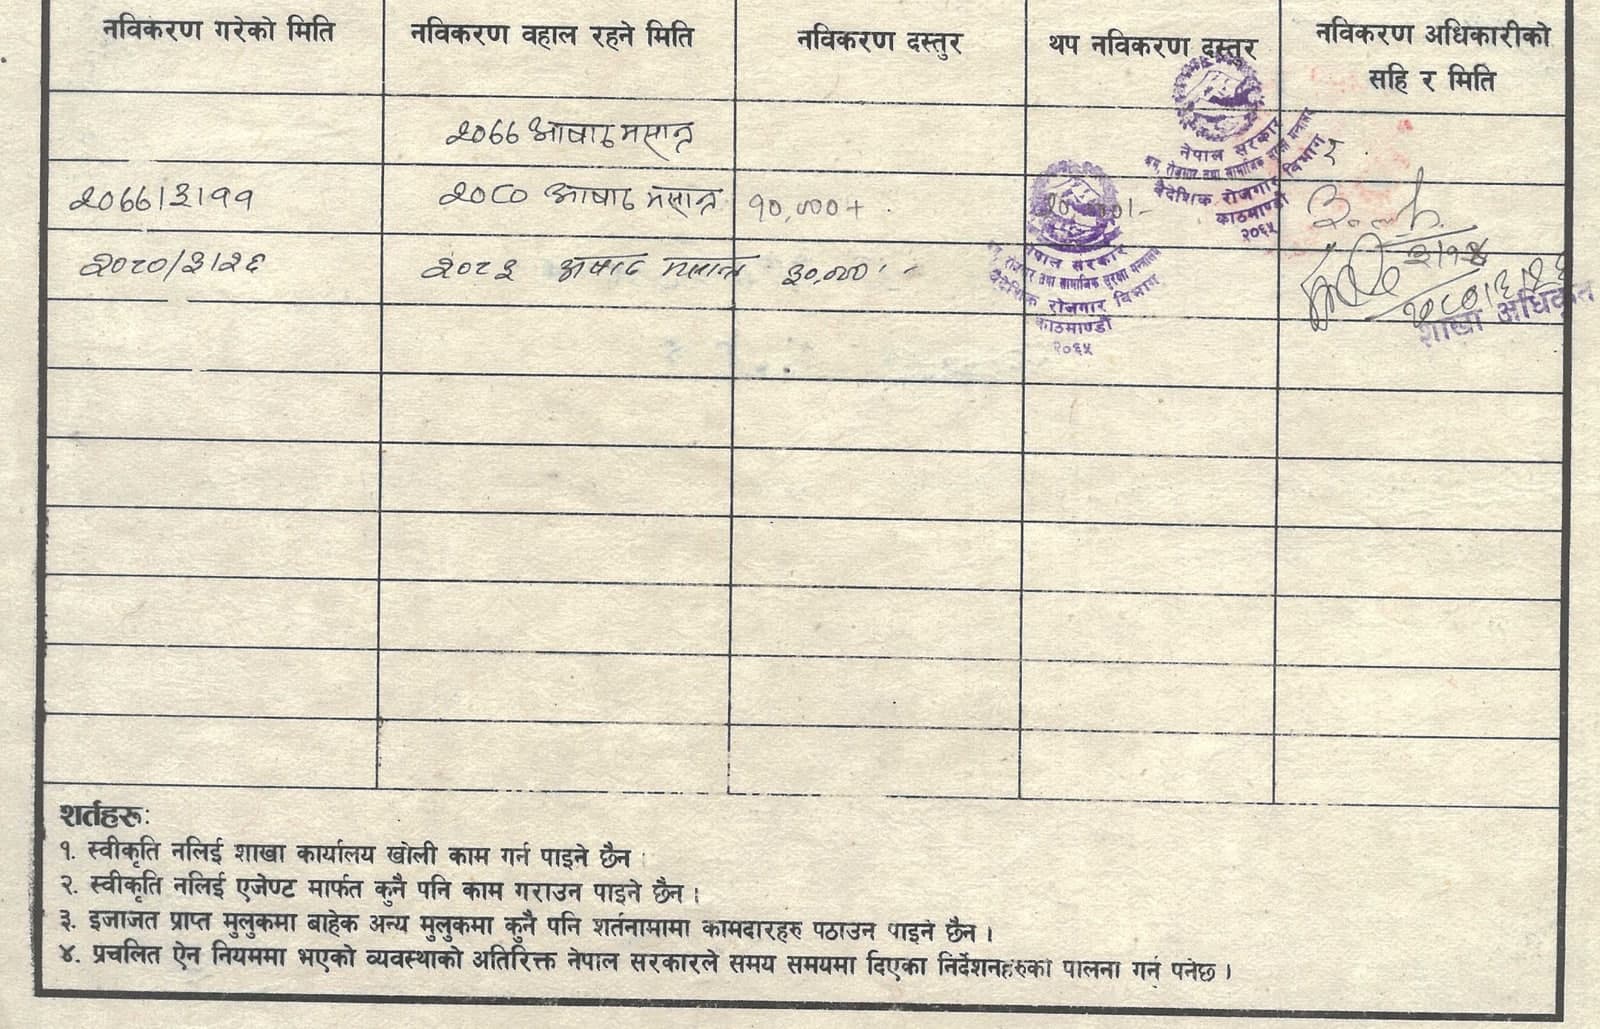 नविकरण गरेको मिति नविकरण वहाल रहने मिति नविकरण दस्तुर थप नविकरण दस्तुर नविकरण अधिकारीको
सहि र मिति
२०७७ आषाढ मसान्त
२०७७।३।११ २०८० आषाढ मसान्त १०,०००+
२०८०/३।२६ २०८३ अषाढ मसान्त ३०,०००।-
नेपाल सरकार
वैदेशिक रोजगार विभाग
काठमाण्डौ
२०६५
नेपाल सरकार
श्रम, रोजगार तथा सामाजिक सुरक्षा मन्त्रालय
वैदेशिक रोजगार विभाग
काठमाण्डौ
२०६५
२०८०।३।२६
शाखा अधिकृत
शर्तहरू:
१. स्वीकृति नलिई शाखा कार्यालय खोली काम गर्न पाइने छैन ।
२. स्वीकृति नलिई एजेण्ट मार्फत कुनै पनि काम गराउन पाइने छैन ।
३. इजाजत प्राप्त मुलुकमा बाहेक अन्य मुलुकमा कुनै पनि शर्तनामामा कामदारहरु पठाउन पाइने छैन ।
४. प्रचलित ऐन नियममा भएको व्यवस्थाको अतिरिक्त नेपाल सरकारले समय समयमा दिएका निर्देशनहरुको पालना गर्नु पर्नेछ ।